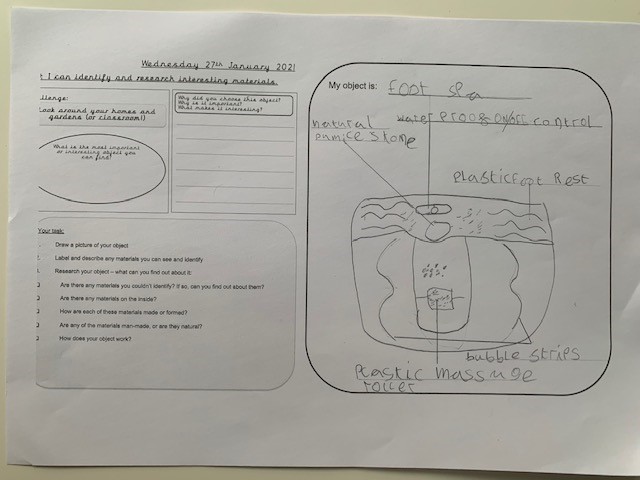 Wednesday 27th January 2021
I can identify and research interesting materials.
llenge:
Look around your homes and
gardens (or classroom!)
What is the most important
or interesting object you
can find?
Why did you choose this object?
Why is it important?
What makes it interesting?
Your task:
Draw a picture of your object
Label and describe any materials you can see and identify
Research your object – what can you find out about it:
Are there any materials you couldn't identify? If so, can you find out about them?
Are there any materials on the inside?
How are each of these materials made or formed?
Are any of the materials man-made, or are they natural?
How does your object work?
My object is: foot spa
natural
pumice stone
water proof ON/OFF control
Plastic foot Rest
bubble strips
Plastic massage
roller